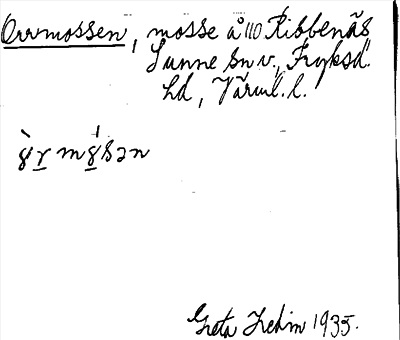 Orrmossen, mosse å 110 Ribbenäs
Sunne sn v., Fryksd.
hd, Värml. l.
Greta Hedin 1935.